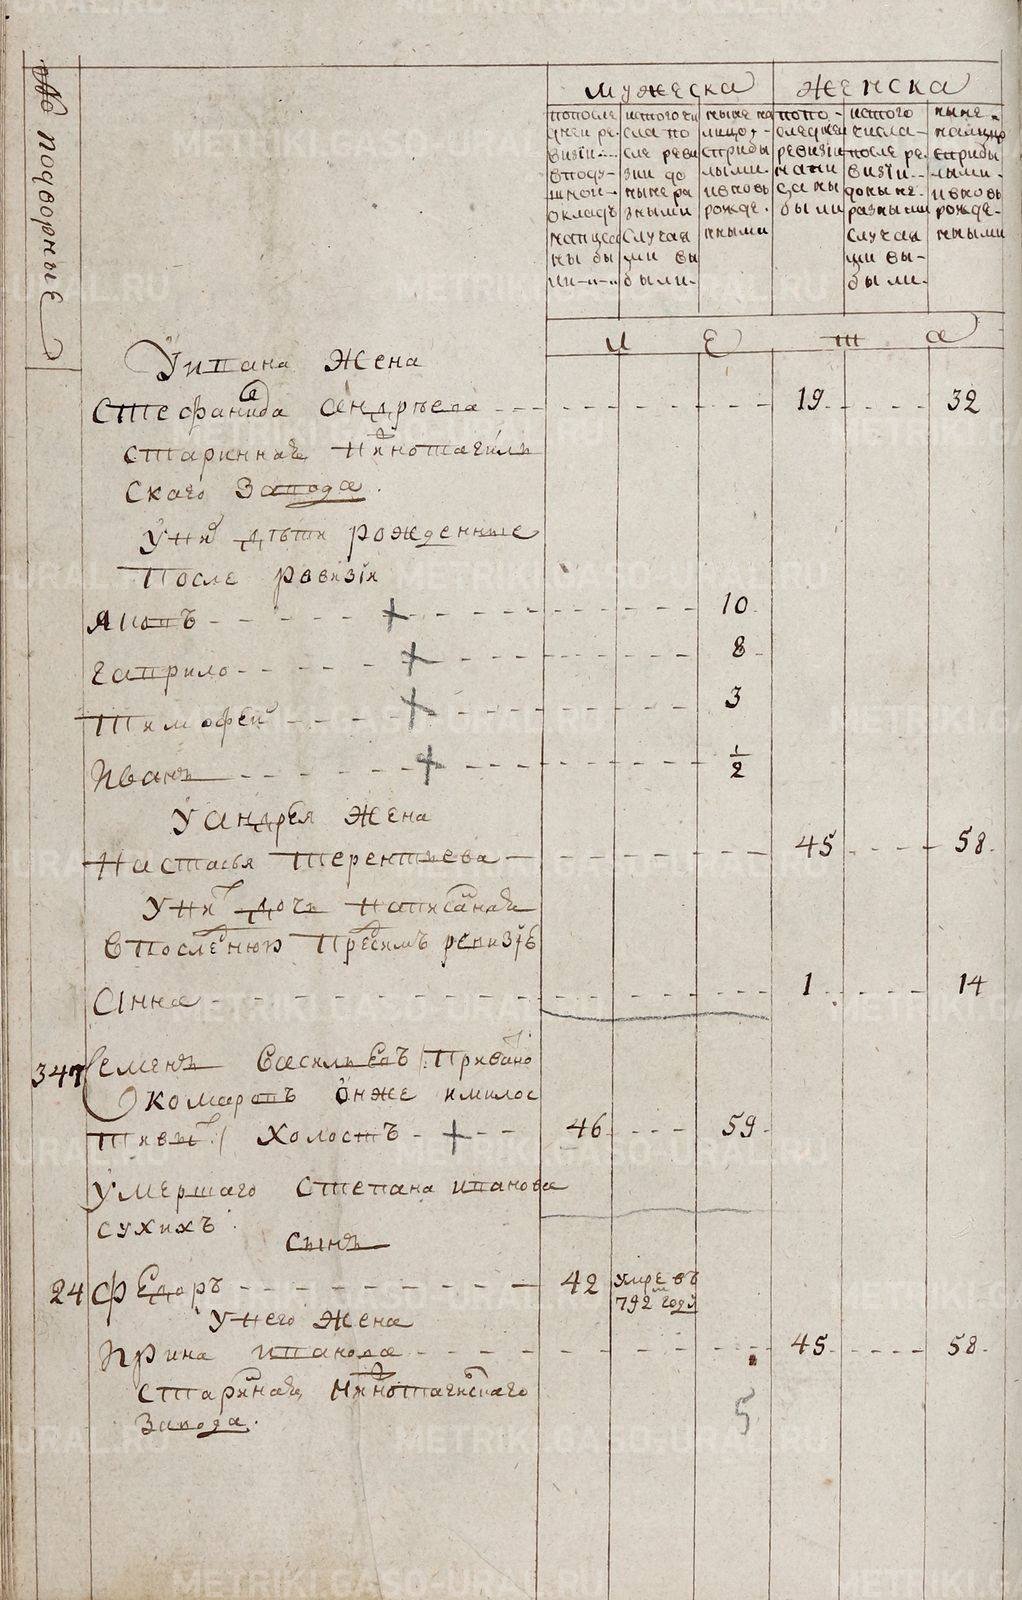 подворные
мужеска
женска
попослѣ
дней ре
визіи
вподу
шной
окладъ
написа
ны бы
ли
истого чи
сла по
сле реви
зіи до
ныне ра
зными
случая
ми вы
были
ныне на
лицо
сприбы
лыми
ивновь
рожде
нными
попо
следней
ревизіи
напи
саны
были
истого
числа
после ре
визіи
доныне
разными
случая
ми вы
были
ныне
налицо
сприбы
лыми
ивновь
рожде
нными
л е т а
Уивана жена
Стефанида Андрѣева 19 32
стариннаг Нижнотагил
скаго Завода.
Унихъ дѣти рожденные
После ревизіи
Яковъ 10
Гаврило 8
Тимофей 3
Иванъ 1/2
Уандрея жена
Настасья Терентиева 45 58
Унихъ дочь написанная
впоследнюю пресимъ ревизіѣ
Анна 1 14
347 Семенъ Васильевъ /: Прозвано
Комаровъ онже имилос
тивый :/ холостъ 46 59
Умершаго Степана иванова
сухихъ
сынъ
24 Федоръ 42 умре въ
792 годѣ
Унего жена
Ирина иванова 45 58
старинная Нижнотагилскаго
Завода.
5
METRIKI.GASO-URAL.RU